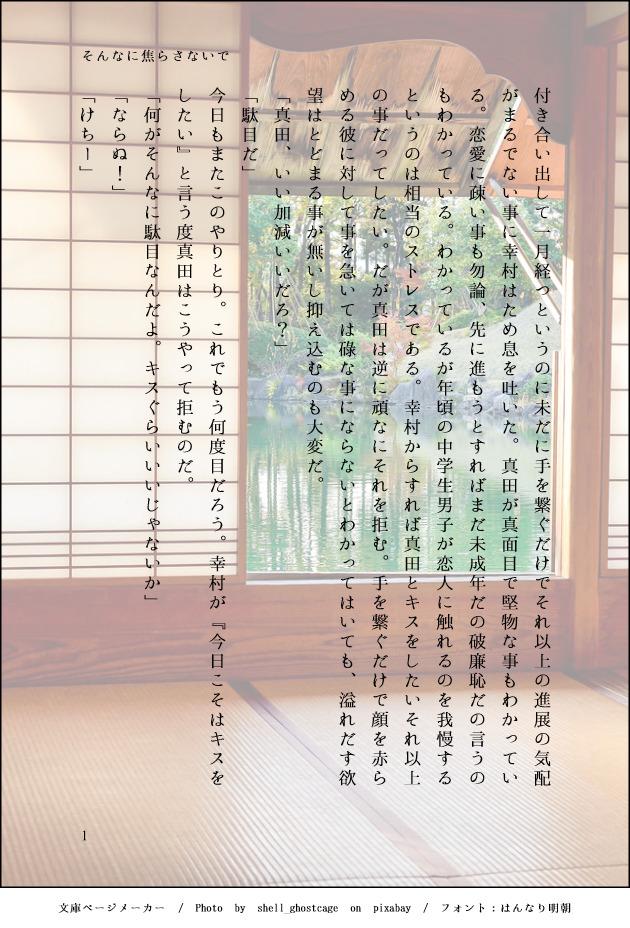 そんなに焦らさないで
付き合い出して一月経つというのに未だに手を繋ぐだけでそれ以上の進展の気配
がまるでない事に幸村はため息を吐いた。真田が真面目で堅物な事もわかってい
る。恋愛に疎い事も勿論、先に進もうとすればまだ未成年だの破廉恥だの言うの
もわかっている。わかっているが年頃の中学生男子が恋人に触れるのを我慢する
というのは相当のストレスである。幸村からすれば真田とキスをしたいそれ以上
の事だってしたい。だが真田は逆に頑なにそれを拒む。手を繋ぐだけで顔を赤ら
める彼に対して事を急いては碌な事にならないとわかってはいても、溢れだす欲
望はとどまる事が無いし抑え込むのも大変だ。
「真田、いい加減いいだろ？」
「駄目だ」
今日もまたこのやりとり。これでもう何度目だろう。幸村が『今日こそはキスを
したい』と言う度真田はこうやって拒むのだ。
「何がそんなに駄目なんだよ。キスぐらいいいじゃないか」
「ならぬ！」
「けちー」
1
文庫ページメーカー / Photo by shell_ghostcage on pixabay / フォント：はんなり明朝